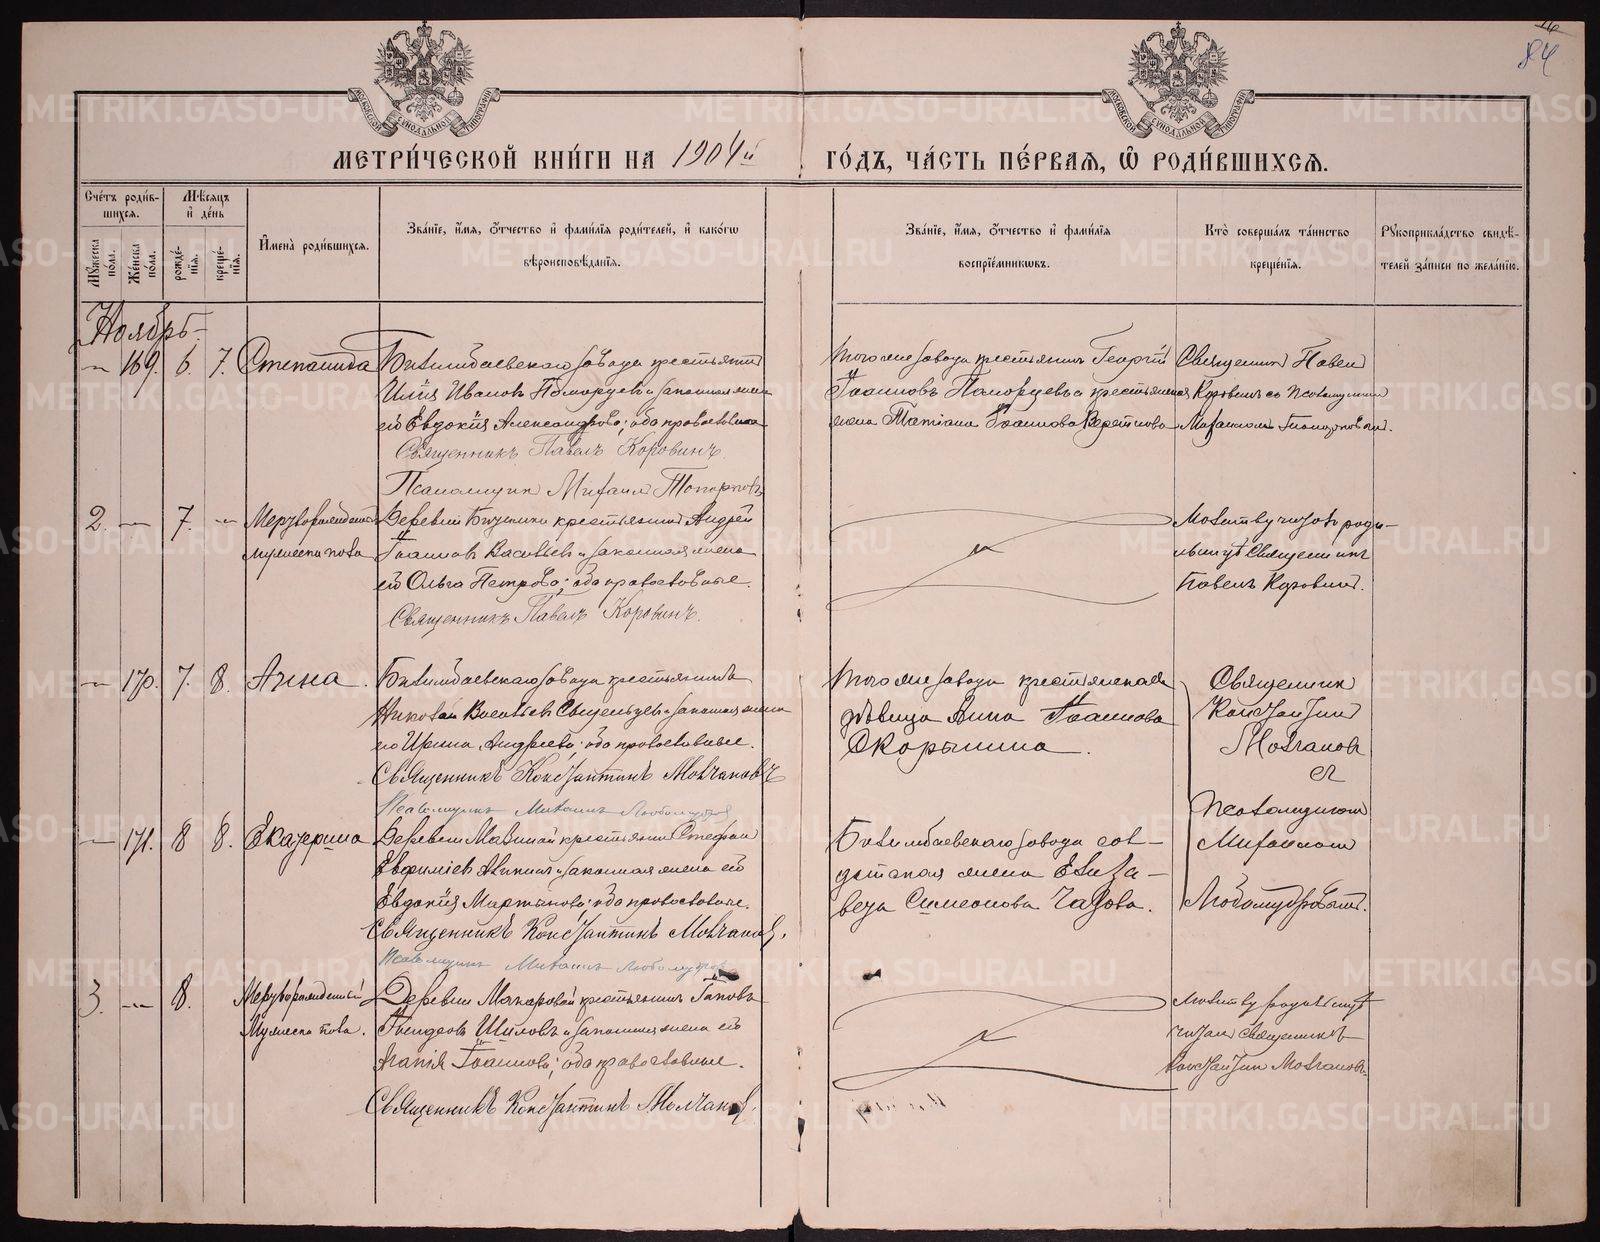 84
МОСКОВСКОЙ СѴНОДАЛЬНОЙ ТИПОГРАФІИ
МОСКОВСКОЙ СѴНОДАЛЬНОЙ ТИПОГРАФІИ
МЕТРИ́ЧЕСКОЙ КНИ́ГИ НА 1904й ГО́ДЪ, ЧА́СТЬ ПЕ́РВАѦ, Ѿ РОДИ́ВШИХСѦ.
Сче́тъ роди́в-
шихсѧ.
Мꙋ́жеска пола.
Же́нска пола.
Мѣ́сѧцъ
и де́нь
рожде́-
нїѧ.
креще́-
нїѧ.
Имена̀ роди́вшихсѧ.
Зва́нїе, и́мѧ, о́тчество и фами́лїѧ роди́телей, и како́гѡ
вѣроисповѣ́данїѧ.
Зва́нїе, и́мѧ, о́тчество и фами́лїѧ
воспрїе́мникѡвъ.
Кто̀ соверша́лъ та́инство
креще́нїѧ.
Рꙋкоприкла́дство свидѣ́-
телей за́писи по жела́нїю.
Ноябрь
— 169. 6. 7. Степанида
Билимбаевскаго завода крестьянинъ
Илія Ивановъ Поморцевъ и законная жена
его Евдокія Александрова; оба православные
Священникъ Павелъ Коровинъ
Псаломщикъ Михаилъ Топорковъ
Того же завода крестьянинъ Георгій
Іоанновъ Поморцевъ и крестьянская
жена Татіана Іоаннова
Священникъ Павелъ
Коровинъ съ псаломщикомъ
Михаиломъ Топорковымъ.
2. — 7. — Мертворожденный
мужеска пола
Деревни крестьянинъ Андрей
Іоанновъ Васильевъ и законная жена
его Ольга Петрова; оба православные.
Священникъ Павелъ Коровинъ.
Молитву читалъ роди-
льницѣ Священникъ
Павелъ Коровинъ.
— 170. 7. 8. Анна.
Билимбаевскаго завода крестьянинъ
Николай Васильевъ и законная жена
его Ирина Андреева; оба православные.
Священникъ Константинъ Молчановъ
Псаломщикъ Михаилъ Любомудровъ
Того же завода крестьянская
дѣвица Анна Іоаннова
Скорынина.
Священникъ
Константинъ
Молчановъ
съ
псаломщикомъ
Михаиломъ
Любомудровымъ.
— 171. 8 8. Екатерина
Деревни крестьянинъ Стефанъ
Евфиміевъ и законная жена его
Евдокія Мартьянова; оба православные.
Священникъ Константинъ Молчановъ.
Псаломщикъ Михаилъ Любомудровъ
Билимбаевскаго завода сол-
датская жена Елиза-
вета Симеонова Чазова.
3. — 8. Мертворожденный
Мужеска пола.
Деревни Макаровой крестьянинъ Іаковъ
Шиловъ и законная жена его
Агапія Іоаннова; оба православные.
Священникъ Константинъ Молчановъ.
Молитву родильницѣ
читалъ священникъ
Константинъ Молчановъ.
METRIKI.GASO-URAL.RU